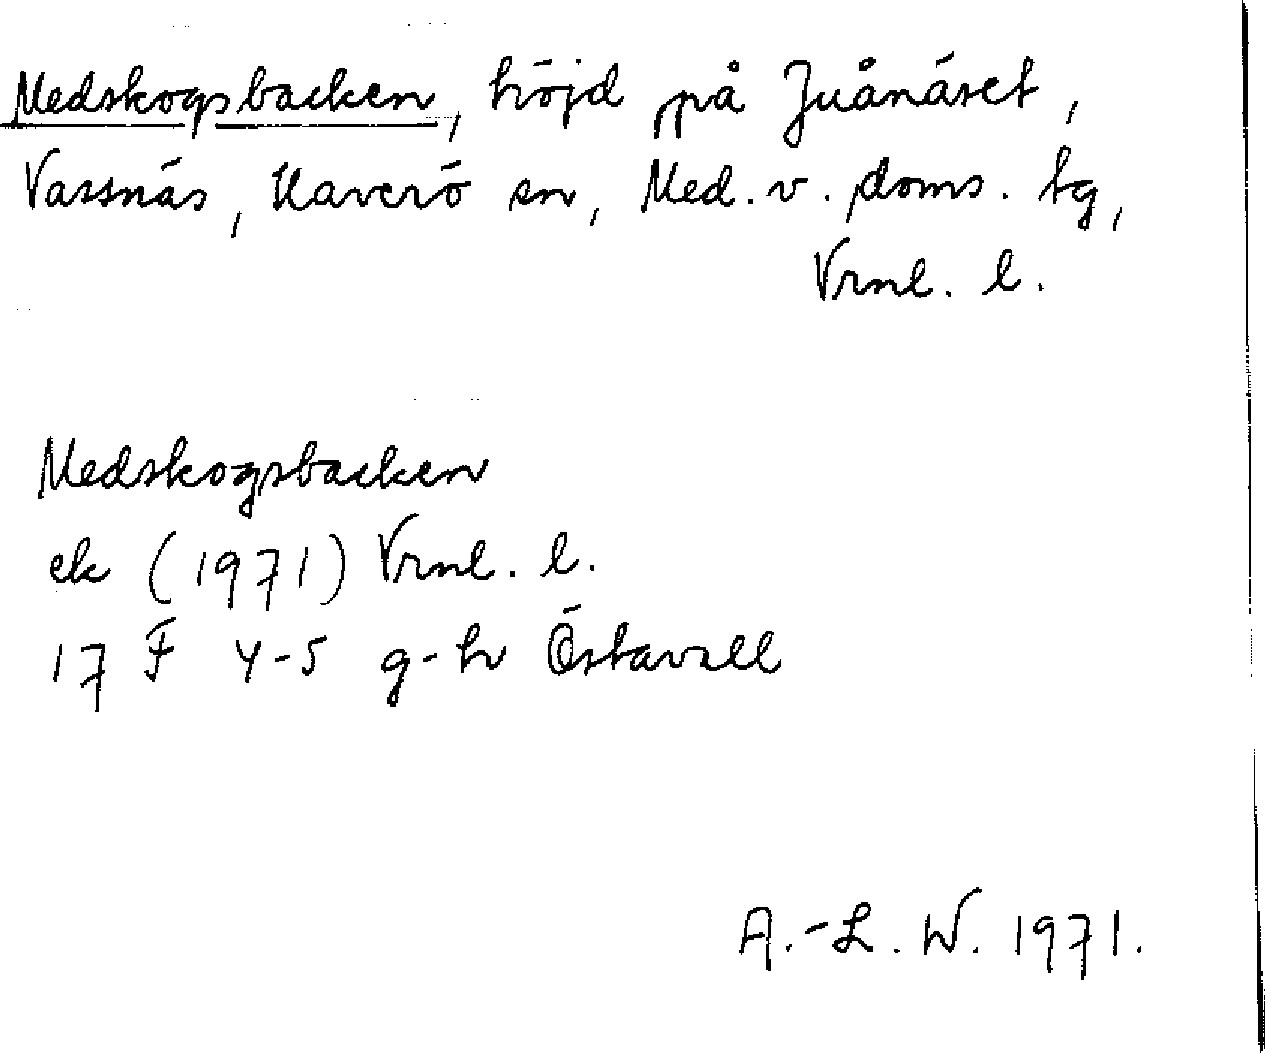 Medskogsbacken, höjd på Juånäset,
Vassnäs, Haverö sn, Med. v. doms. tg,
Vrnl. l.
Medskogsbacken
ek (1971) Vrnl. l.
17 F 4-5 g-h Östavall
A.-L. W. 1971.